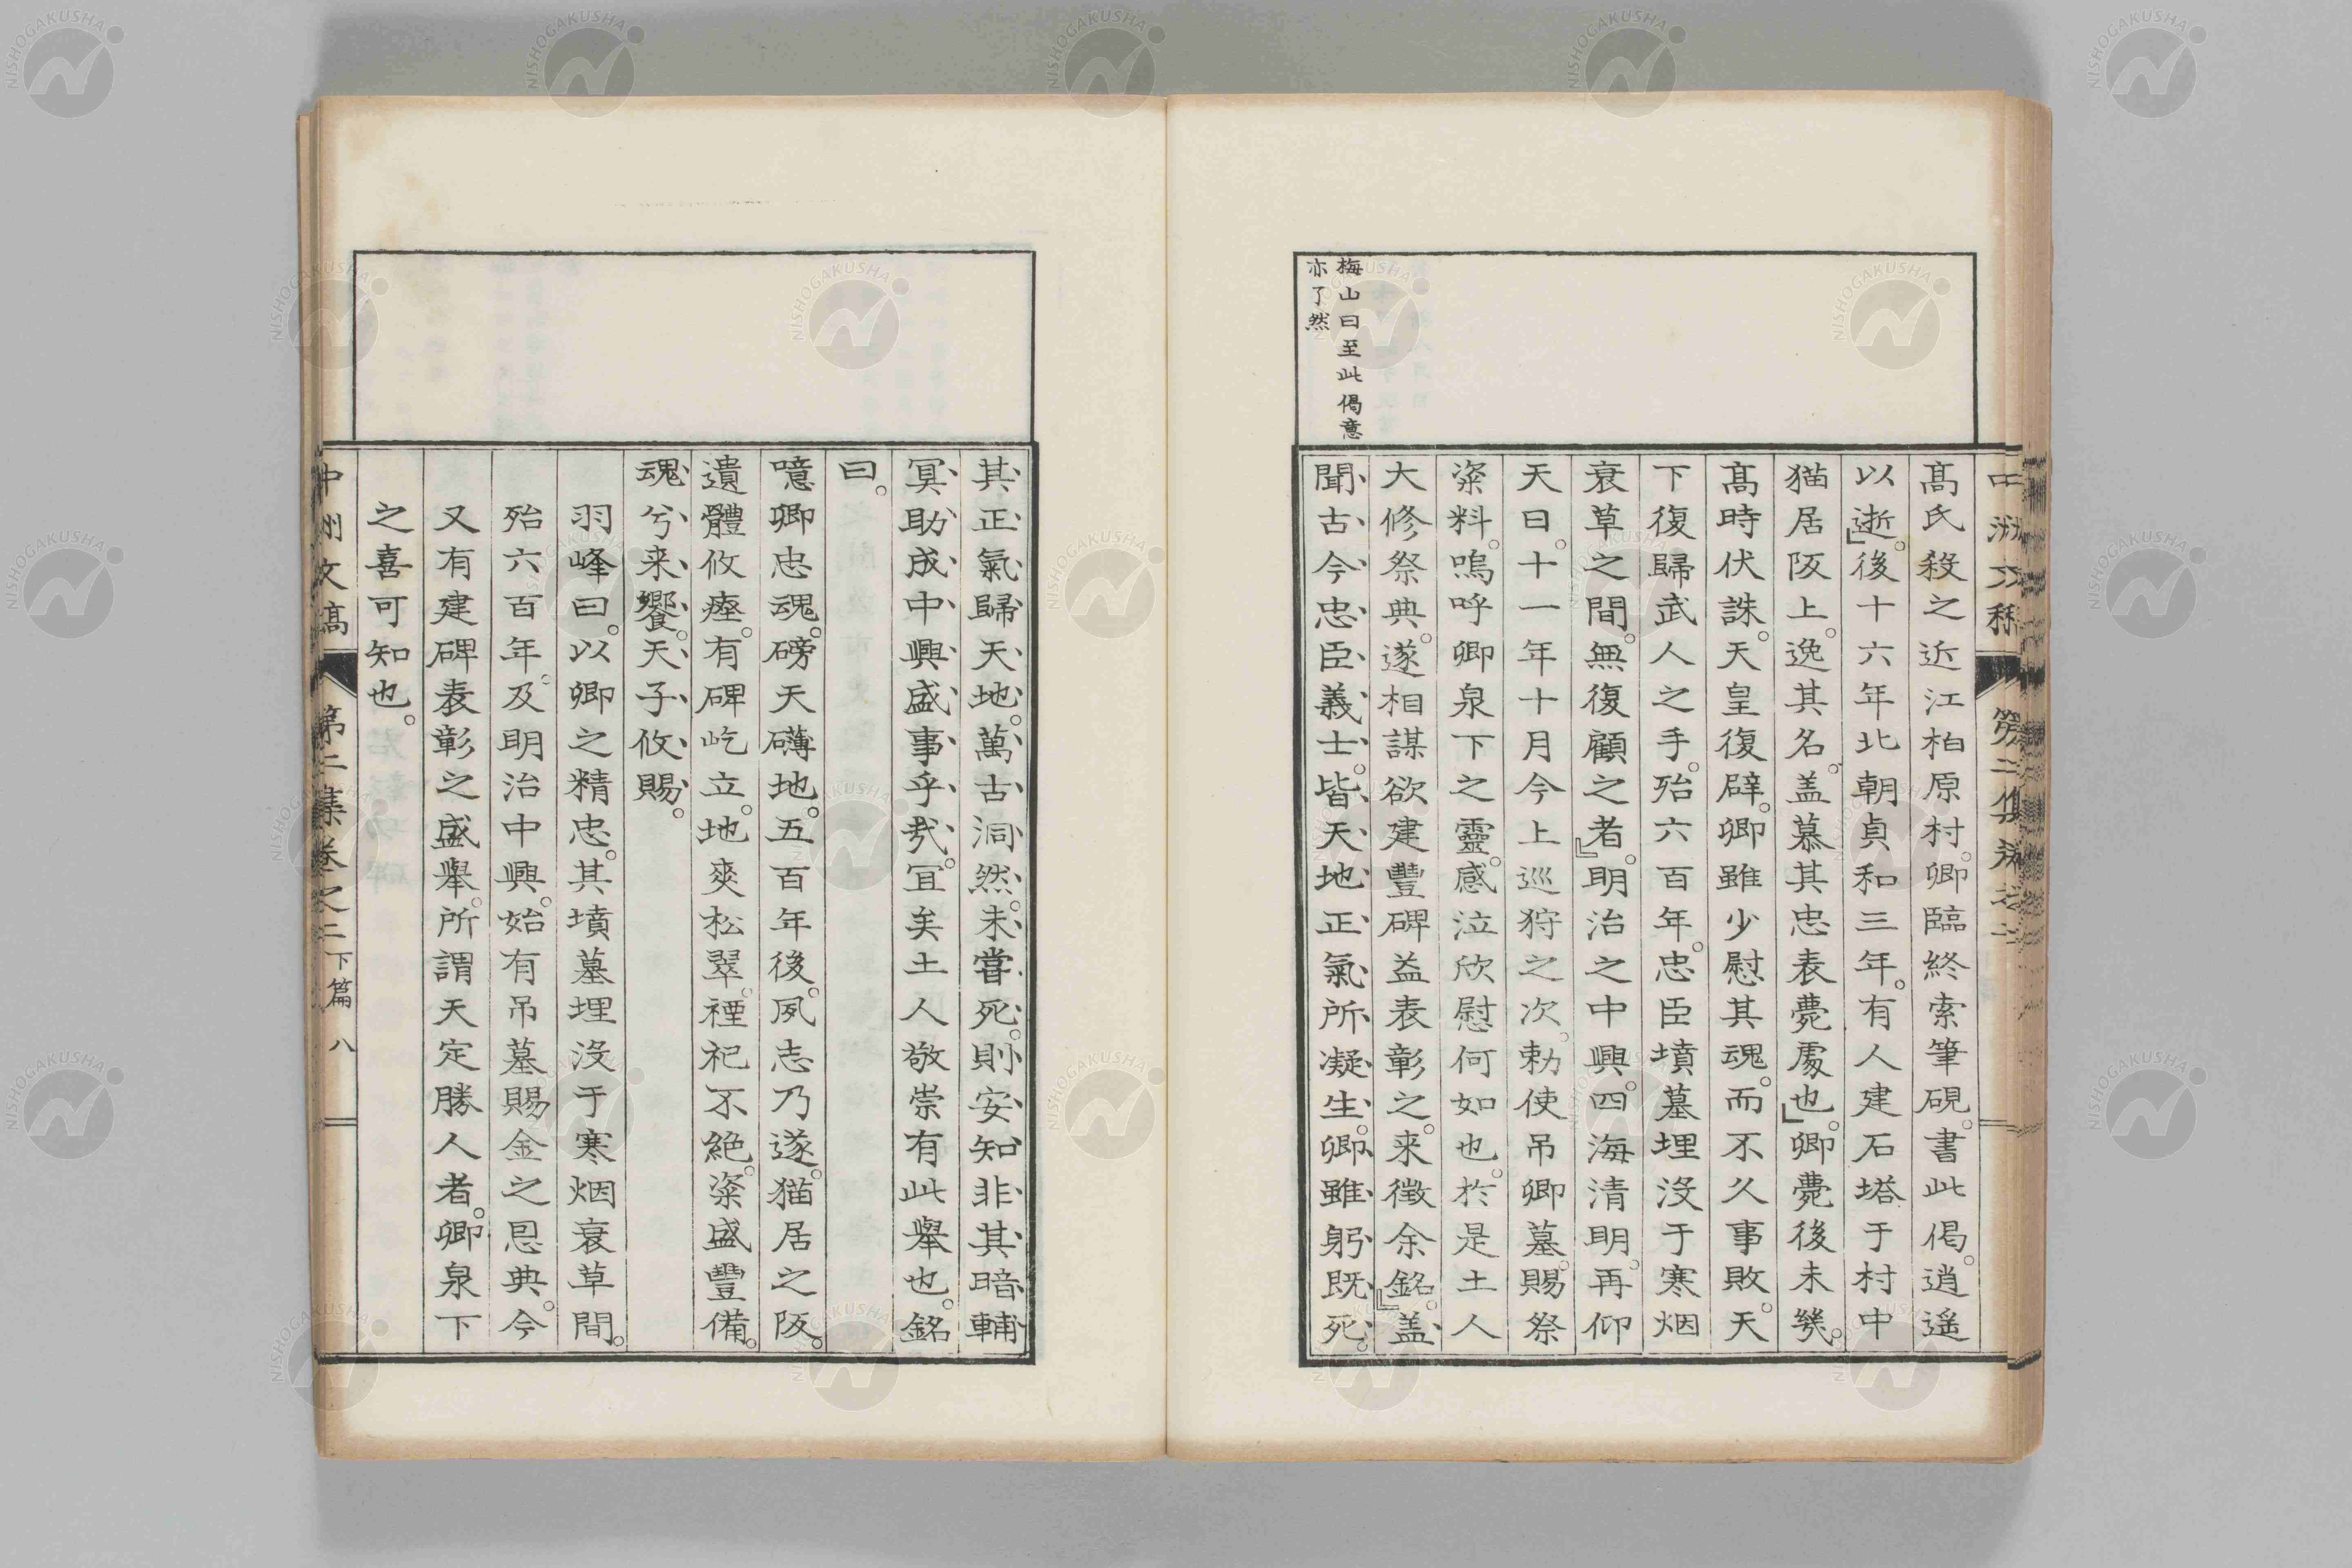 梅山曰至此偈意
亦了然
高氏殺之近江柏原村。卿臨終索筆硯。書此偈。逍遥
以逝。」後十六年北朝貞和三年。有人建石塔于村中
猫居阪上。逸其名。盖慕其忠表薨處也。」卿薨後未幾。
高時伏誅。天皇復辟。卿雖少慰其魂。而不久事敗。天
下復歸武人之手。殆六百年。忠臣墳墓埋没于寒烟
衰草之間。無復顧之者。」明治之中興。四海清明。再仰
天日。十一年十月今上巡狩之次。勅使吊卿墓。賜祭
粢料。嗚呼卿泉下之靈。感泣欣慰何如也。於是土人
大修祭典。遂相謀欲建豐碑益表彰之。来徴余銘。」盖
聞古今忠臣義士。皆天地正氣所凝生。卿雖躬既死。
其正氣歸天地。萬古洞然。未嘗死。則安知非其暗輔
冥助成中興盛事乎哉。冝矣土人敬崇有此舉也。銘
曰。
噫卿忠魂。磅天礴地。五百年後。夙志乃遂。猫居之阪。
遺體攸瘞。有碑屹立。地爽松翠。禋祀不絶。粢盛豐備。
魂兮来饗。天子攸賜。
羽峰曰。以卿之精忠。其墳墓埋没于寒烟衰草間。
殆六百年。及明治中興。始有吊墓賜金之恩典。今
又有建碑表彰之盛舉。所謂天定勝人者。卿泉下
之喜可知也。
中洲文稿
第二集卷之二下篇
八